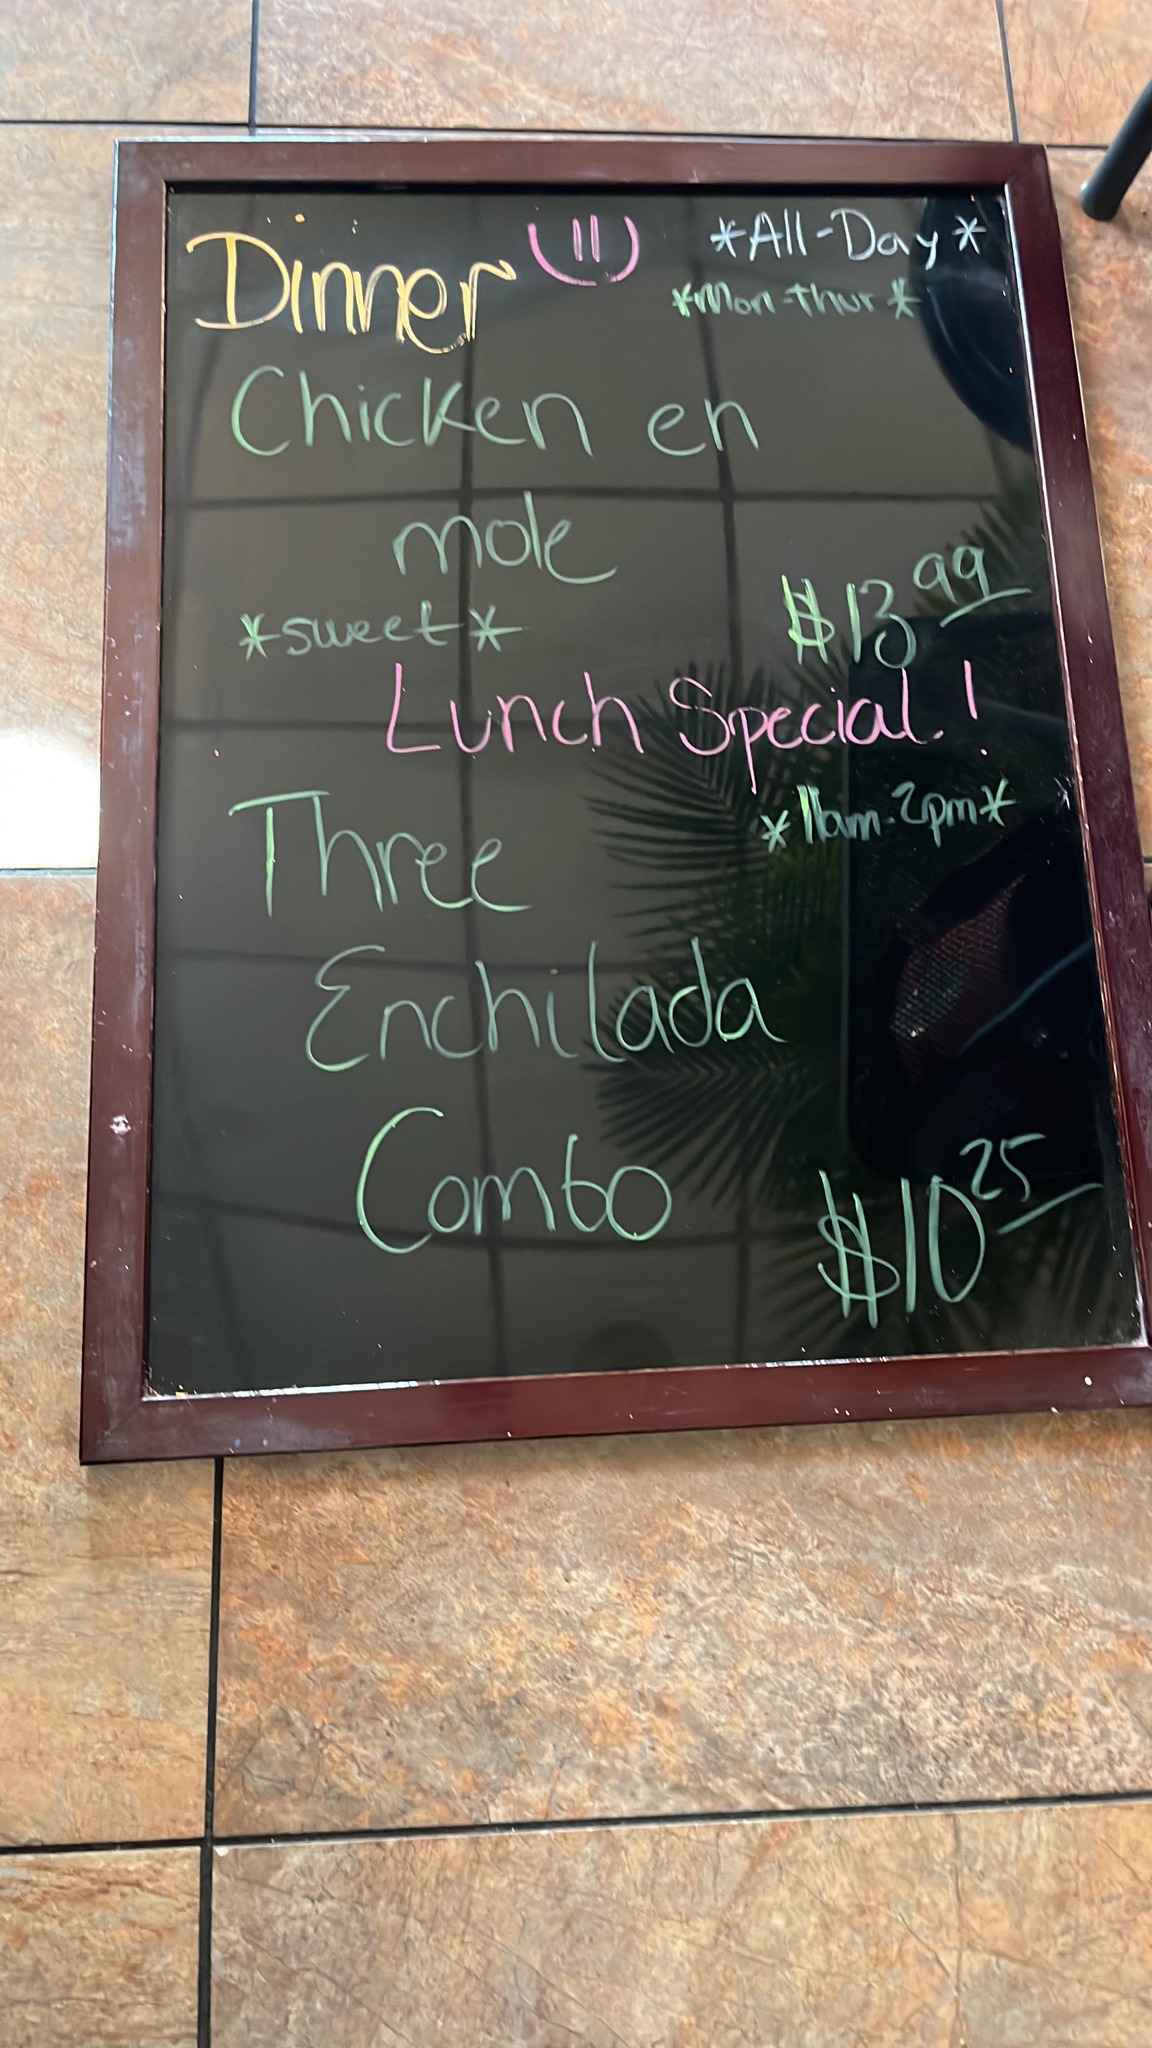 Dinner *All-Day*
*Mon-Thur*
Chicken en
mole
*sweet* $13.99
Lunch Special!
*11am-2pm*
Three
Enchilada
Combo
$10.25